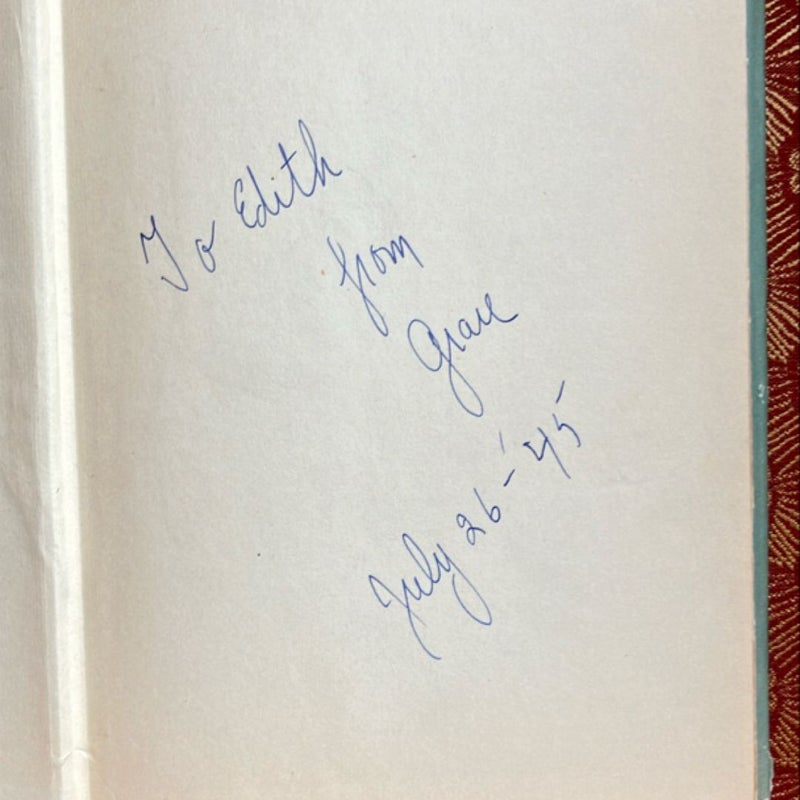 To Edith
from
Grace
July 26-'45